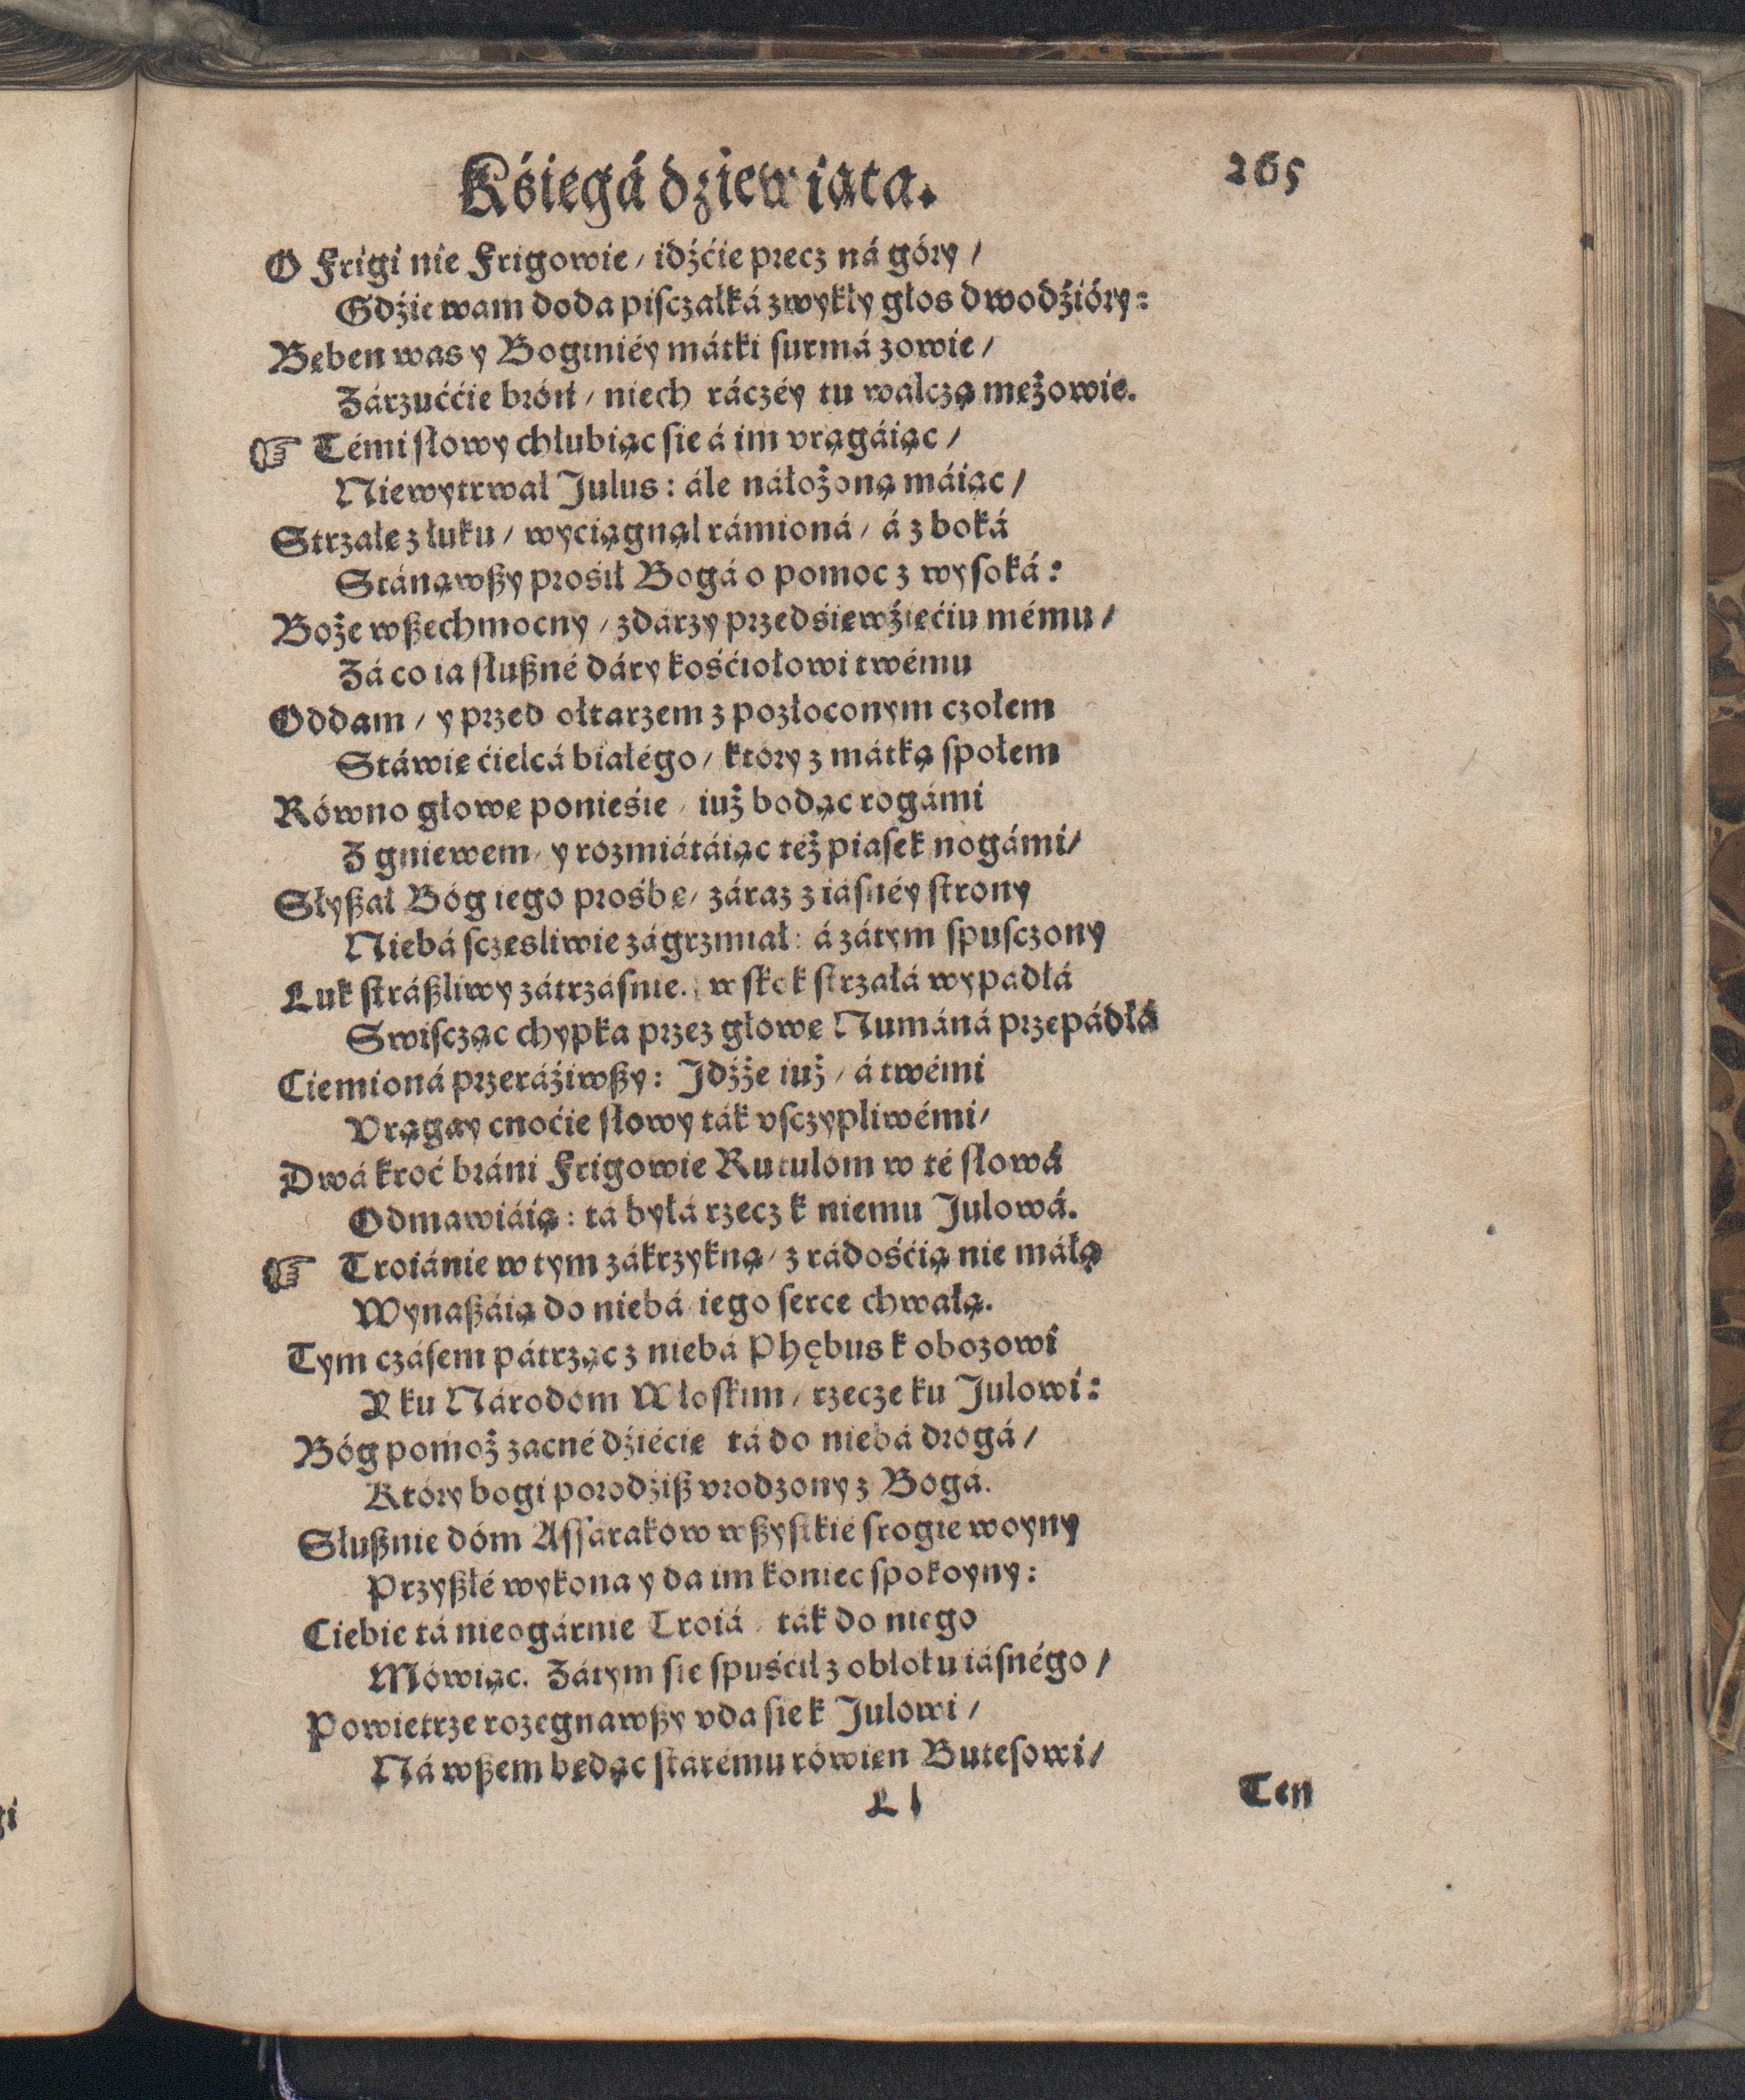 Kśięgá dziewiąta.
265
O Frigi nie Frigowie / idźćie precz ná góry /
Gdźie wam doda pisczałká zwykły głos dwodźióry:
Bęben was y Boginiéy mátki surmá zowie /
Zárzuććie bróń / niech ráczéy tu walczą mężowie.
☞ Témi słowy chłubiąc sie á im vrągáiąc /
Niewytrwał Julus: ále náłożoną máiąc /
Strzałę z łuku / wyciągnął rámioná / á z boká
Stánąwßy prośił Bogá o pomoc z wysoká:
Boże wßechmocny / zdarzy przedśięwźięćiu mému /
Zá co ia słußné dáry kośćiołowi twému
Oddam / y przed ołtarzem z pozłoconym czołem
Stáwię ćielcá białégo / który z mátką społem
Równo głowę ponieśie / iuż bodąc rogámi
Z gniewem / y rozmiátáiąc też piasek nogámi /
Słyßał Bóg iego prośbę / záraz z iásnéy strony
Niebá sczęsliwie zágrzmiał: á zátym spusczony
Łuk stráßliwy zátrzasnie. w skok strzałá wypadłá
Swiscząc chypka przez głowę Numáná przepádłá
Ciemioná przeráźiwßy: Jdźże iuż / á twémi
Vrągay cnoćie słowy ták vsczypliwémi /
Dwá kroć bráni Frigowie Rutulom w té słowá
Odmawiáią: tá byłá rzecz k niemu Julowá.
☞ Troiánie w tym zákrzykną / z rádośćią nie máłą
Wynaßáią do niebá iego serce chwałą.
Tym czásem pátrząc z niebá Phębus k obozowi
Y ku Národom Włoskim / rzecze ku Julowi:
Bóg pomoż zacné dźiécię tá do niebá drogá /
Który bogi porodźiß vrodzony z Bogá.
Słußnie dóm Assarakow wßystkie srogie woyny
Przyßłé wykona y da im koniec spokoyny:
Ciebie tá nieogárnie Troiá / ták do niego
Mówiąc. Zátym sie spuśćił z obłoku iásnégo /
Powietrze rozegnawßy vda sie k Julowi /
Ná wßem będąc stárému rówien Butesowi /
Ll
Ten
gi